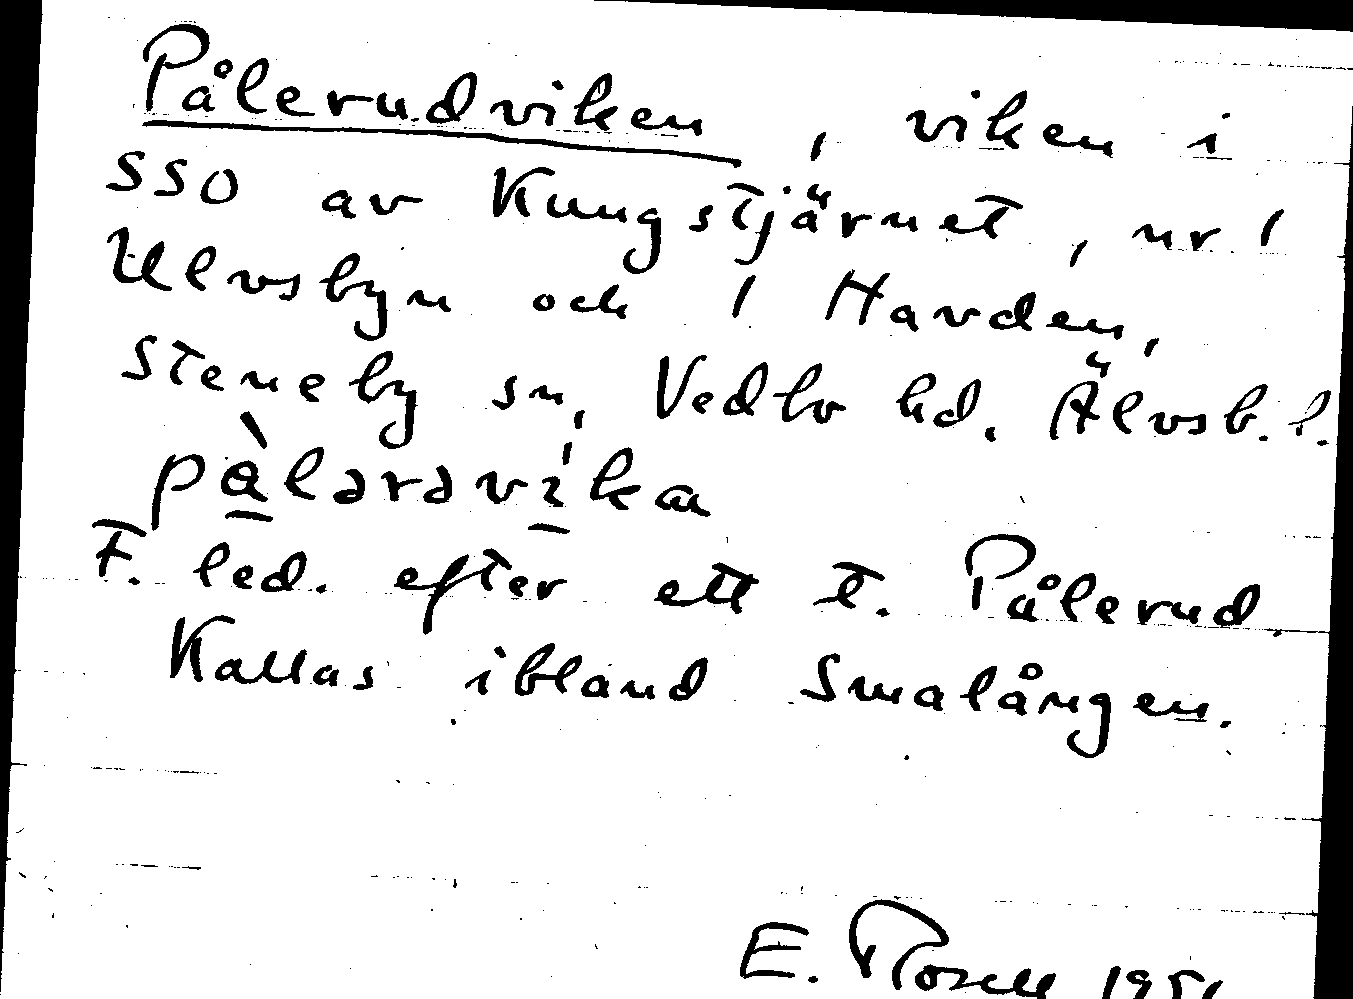 Pålerudviken, viken i
SSO av Kungstjärnet, nr 1
Ulvsbyn och 1 Havden,
Steneby sn, Vedbo hd. Älvsb. l.
pàlərəvíkａ
F. led. efter ett t. Pålerud.
Kallas ibland Smalången.
E. Rosell 1951